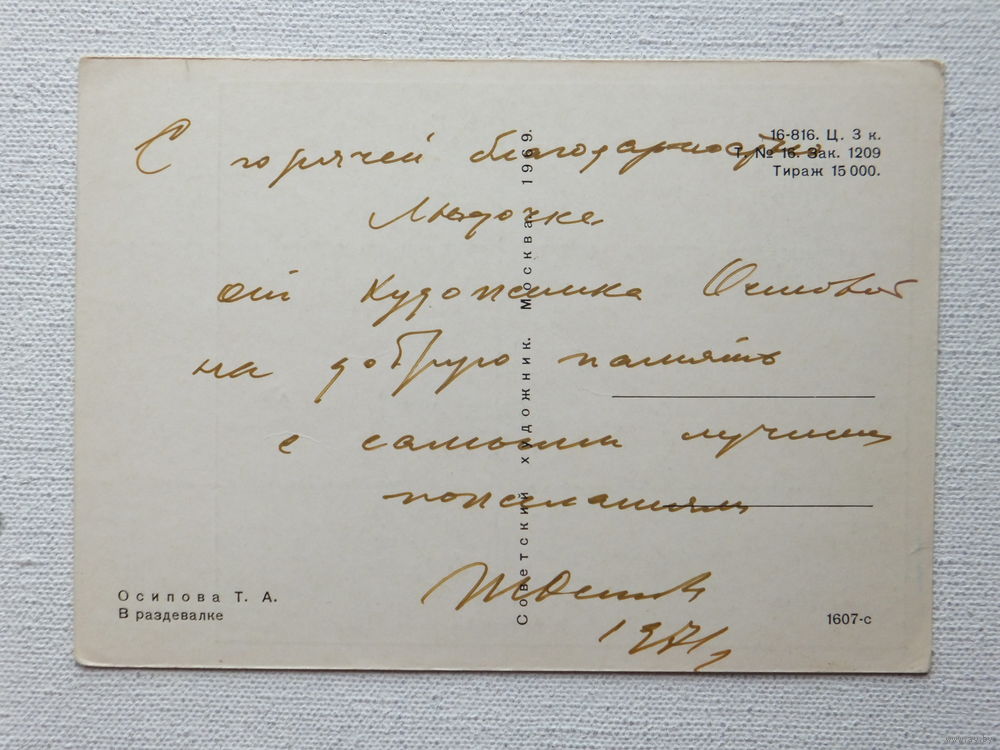 С горячей благодарностью
Людочке
от художника Осиповой
на добрую память
с самыми лучшими
пожеланиями
ТОсипов
1971г
16-816. Ц. 3 к.
Т. № 16. Зак. 1209
Тираж 15 000.
Советский художник. Москва 1969.
Осипова Т. А.
В раздевалке
1607-с